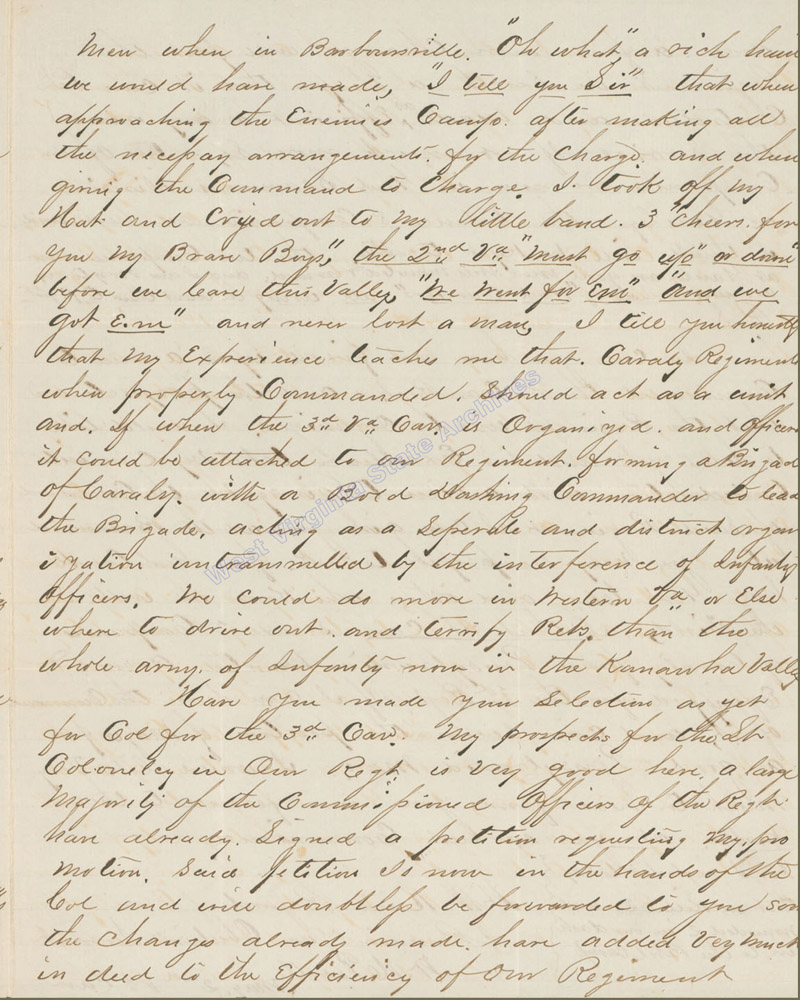 Men when in Barboursville. "Oh what", a rich haul
we would have made, "I tell you Sir" that when
approaching the Enemies Camp. after making all
the necessary arrangements. for the Charge. and when
giving the Command to Charge. I. took off my
Hat and Cryed out to my little band. 3 "Cheers. for
you my Brave Boys", the 2nd Va "must go up" or down"
before we leave this Valley, "We Went for Em" "and we
got E.m" and never lost a man, I tell you honestly
that my Experience teaches me that. Cavaly Regiments
when properly Commanded. Should act as a unit
and. If when the 3d Va Cav. is Organized. and Officered
it could be attached to our Regiment. forming a Brigade
of Cavaly. with a Bold dashing Commander to lead
the Brigade, acting as a Seperate and district organ
ization untrammelled by the interference of Infanty
Officers, We could do more in Western Va or Else
where to drive out. and terrify Rebs. than the
whole army. of Infanty now in the Kanawha Valley
Have you made your Selection as yet
for Col for the 3d Cav. My prospects for the Lt
Colonelcy in Our Regt. is very good here. a large
Majority of the Commissioned Officers of the Regt.
have already. Signed a petition requesting my. pro
motion. Said petition Is now in the hands of the
Col and will doubtless be forwarded to you soon
the changes already made. have added very much
in deed to the Efficiency of Our Regiment
West Virginia State Archives